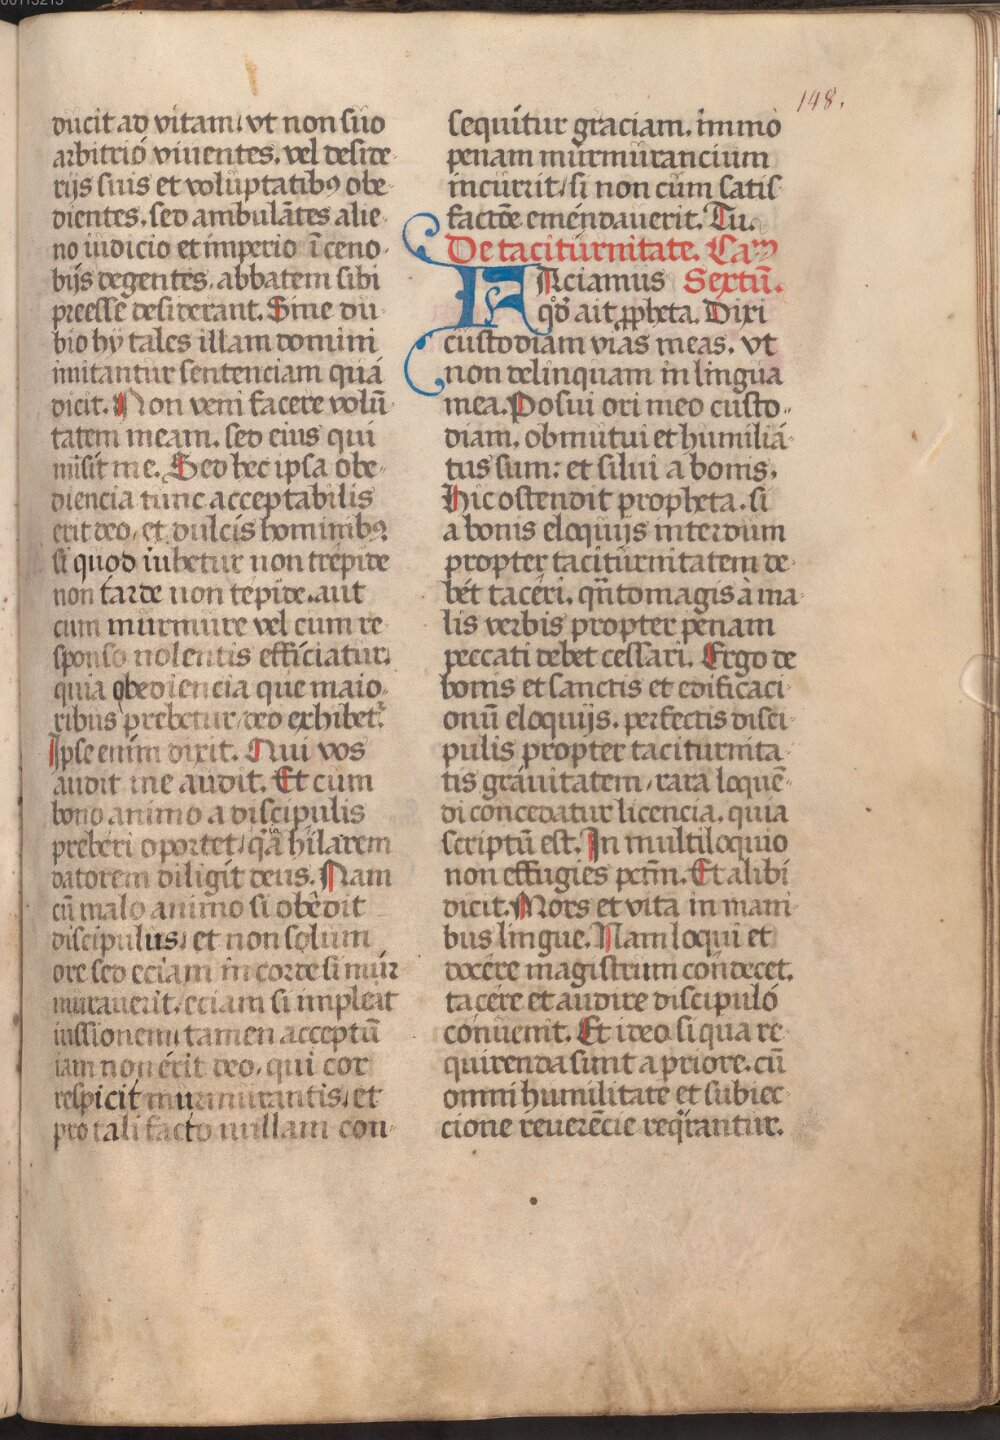 148.
ducit ad vitam, vt non suo
arbitrio viuentes, vel deside-
rijs suis et voluptatibꝰ obe-
dientes, sed ambulātes alie-
no iudicio et imperio ī ceno-
bijs degentes, abbatem sibi
preesse desiderant. Sine du-
bio hÿ tales illam domini
imitantur sentenciam qua
dicit. Non veni facere volū-
tatem meam, sed eius qui
misit me. Sed hec ipsa obe-
diencia tunc acceptabilis
erit deo, et dulcis hominibꝰ,
si quod iubetur non trepide
non tarde non tepide, aut
cum murmure vel cum re-
sponso nolentis efficiatur,
quia obediencia que maio-
ribus prebetur, deo exhibet᷑.
Ipse enim dixit. Qui vos
audit me audit. Et cum
bono animo a discipulis
preberi oportet, qͣa hilarem
datorem diligit deus. Nam
cū malo animo si obedit
discipulus, et non solum
ore sed eciam in corde si mur
murauerit, eciam si impleat
iussionem, tamen acceptū
iam non erit deo, qui cor
respicit murmurantis, et
pro tali facto nullam con-
sequitur graciam, immo
penam murmurancium
incurrit, si non cum satis-
factōe emendauerit. Tu.
De taciturnitate. Cam
FAciamus Sextū.
qͦd ait ꝓpheta. Dixi
custodiam vias meas, vt
non delinquam in lingua
mea. Posui ori meo custo-
diam, obmutui et humilia-
tus sum: et silui a bonis.
Hic ostendit propheta, si
a bonis eloquijs interdum
propter taciturnitatem de-
bet taceri, qn̄to magis a ma-
lis verbis propter penam
peccati debet cessari. Ergo de
bonis et sanctis et edificaci-
onū eloquijs, perfectis disci-
pulis propter taciturnita-
tis grauitatem, rara loquē-
di concedatur licencia, quia
scriptū est. In multiloquio
non effugies pctm̄. Et alibi
dicit. Mors et vita in mani-
bus lingue. Nam loqui et
docere magistrum condecet,
tacere et audire discipulo
conuenit. Et ideo si qua re-
quirenda sunt a priore, cū
omni humilitate et subiec-
cione reuerēcie reqͥrantur.